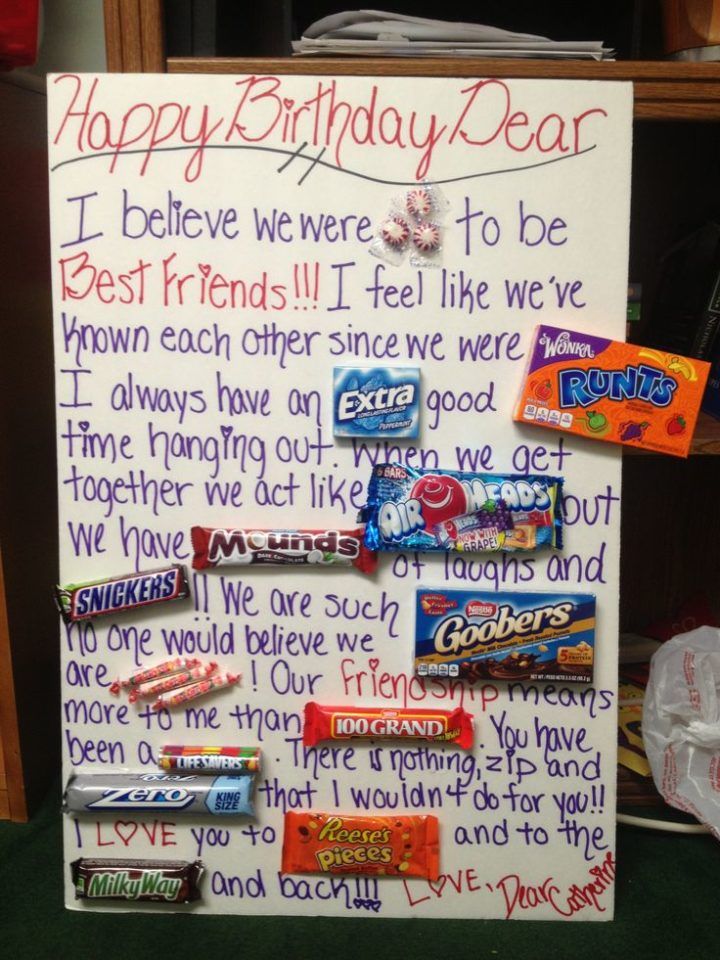 Happy Birthday Dear
I believe we were to be
Best Friends!!! I feel like we've
known each other since we were WONKA RUNTS
I always have an Extra LONG LASTING FLAVOR PEPPERMINT good
time hanging out. When we get
together we act like 6 BARS AIRHEADS NOW WITH GRAPE! but
we have Mounds DARK CHOCOLATE of laughs and
SNICKERS !! We are such Nestlé Goobers
no one would believe we
are ! Our Friendship means
more to me than 100 GRAND . You have
been a LIFESAVERS . There is nothing, zip and
ZERO KING SIZE that I wouldn't do for you!!
I LOVE you to Reese's Pieces and to the
Milky Way and back!!! LOVE, Dear Catherine